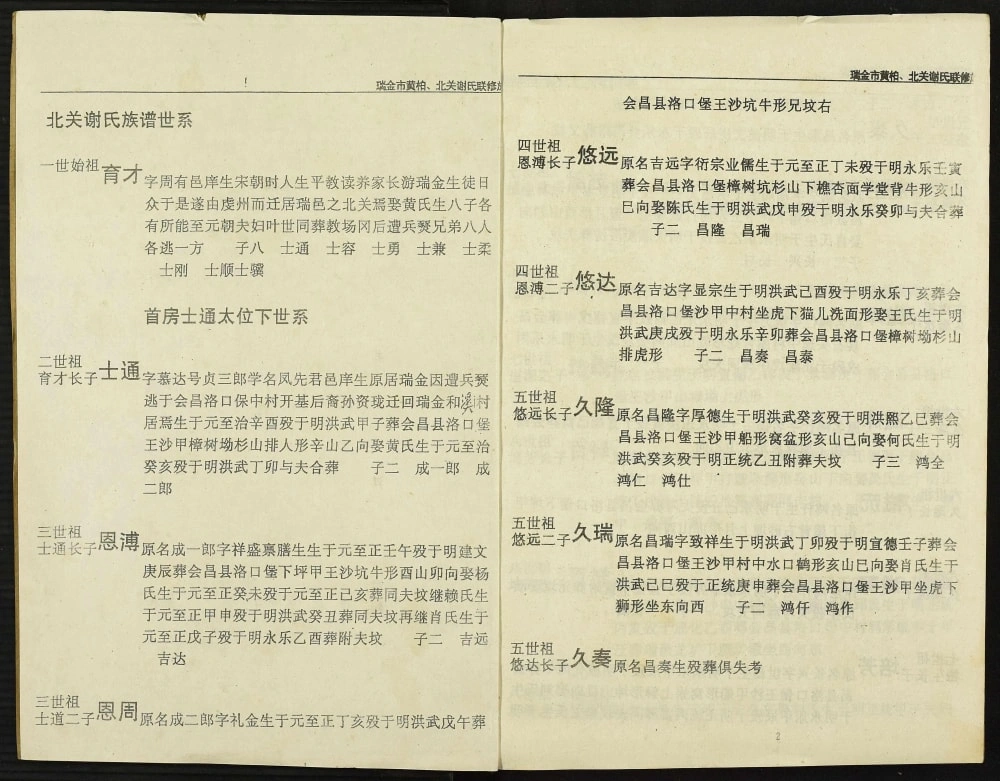 瑞金市黄柏、北关谢氏联修
北关谢氏族谱世系
一世始祖 育才 字周有邑庠生宋朝时人生平教读养家长游瑞金生徒日
众于是遂由虔州而迁居瑞邑之北关焉娶黄氏生八子各
有所能至元朝夫妇叶世同葬教场冈后遭兵燹兄弟八人
各逃一方 子八 士通 士容 士勇 士兼 士柔
士刚 士顺士骥
首房士通太位下世系
二世祖
育才长子 士通 字慕达号贞三郎学名凤先君邑庠生原居瑞金因遭兵燹
逃于会昌洛口保中村开基后裔孙资珑迁回瑞金和村
居焉生于元至治辛酉殁于明洪武甲子葬会昌县洛口堡
王沙甲樟树坳杉山排人形辛山乙向娶黄氏生于元至治
癸亥殁于明洪武丁卯与夫合葬 子二 成一郎 成
二郎
三世祖
士通长子 恩溥 原名成一郎字祥盛禀膳生生于元至正壬午殁于明建文
庚辰葬会昌县洛口堡下坪甲王沙坑牛形酉山卯向娶杨
氏生于元至正癸未殁于元至正己亥葬同夫坟继赖氏生
于元至正甲申殁于明洪武癸丑葬同夫坟再继肖氏生于
元至正戊子殁于明永乐乙酉葬附夫坟 子二 吉远
吉达
三世祖
士道二子 恩周 原名成二郎字礼金生于元至正丁亥殁于明洪武戊午葬
瑞金市黄柏、北关谢氏联修
会昌县洛口堡王沙坑牛形兄坟右
四世祖
恩溥长子 悠远 原名吉远字衍宗业儒生于元至正丁未殁于明永乐壬寅
葬会昌县洛口堡樟树坑杉山下樵杏面学堂背牛形亥山
巳向娶陈氏生于明洪武戊申殁于明永乐癸卯与夫合葬
子二 昌隆 昌瑞
四世祖
恩溥二子 悠达 原名吉达字显宗生于明洪武己酉殁于明永乐丁亥葬会
昌县洛口堡沙甲中村坐虎下猫儿洗面形娶王氏生于明
洪武庚戌殁于明永乐辛卯葬会昌县洛口堡樟树坳杉山
排虎形 子二 昌奏 昌泰
五世祖
悠远长子 久隆 原名昌隆字厚德生于明洪武癸亥殁于明洪熙乙巳葬会
昌县洛口堡王沙甲船形窝盆形亥山己向娶何氏生于明
洪武癸亥殁于明正统乙丑附葬夫坟 子三 鸿全
鸿仁 鸿仕
五世祖
悠远二子 久瑞 原名昌瑞字致祥生于明洪武丁卯殁于明宣德壬子葬会
昌县洛口堡王沙甲村中水口鹤形亥山巳向娶肖氏生于
洪武己巳殁于正统庚申葬会昌县洛口堡王沙甲坐虎下
狮形坐东向西 子二 鸿仟 鸿作
五世祖
悠达长子 久奏 原名昌奏生殁葬俱失考
2